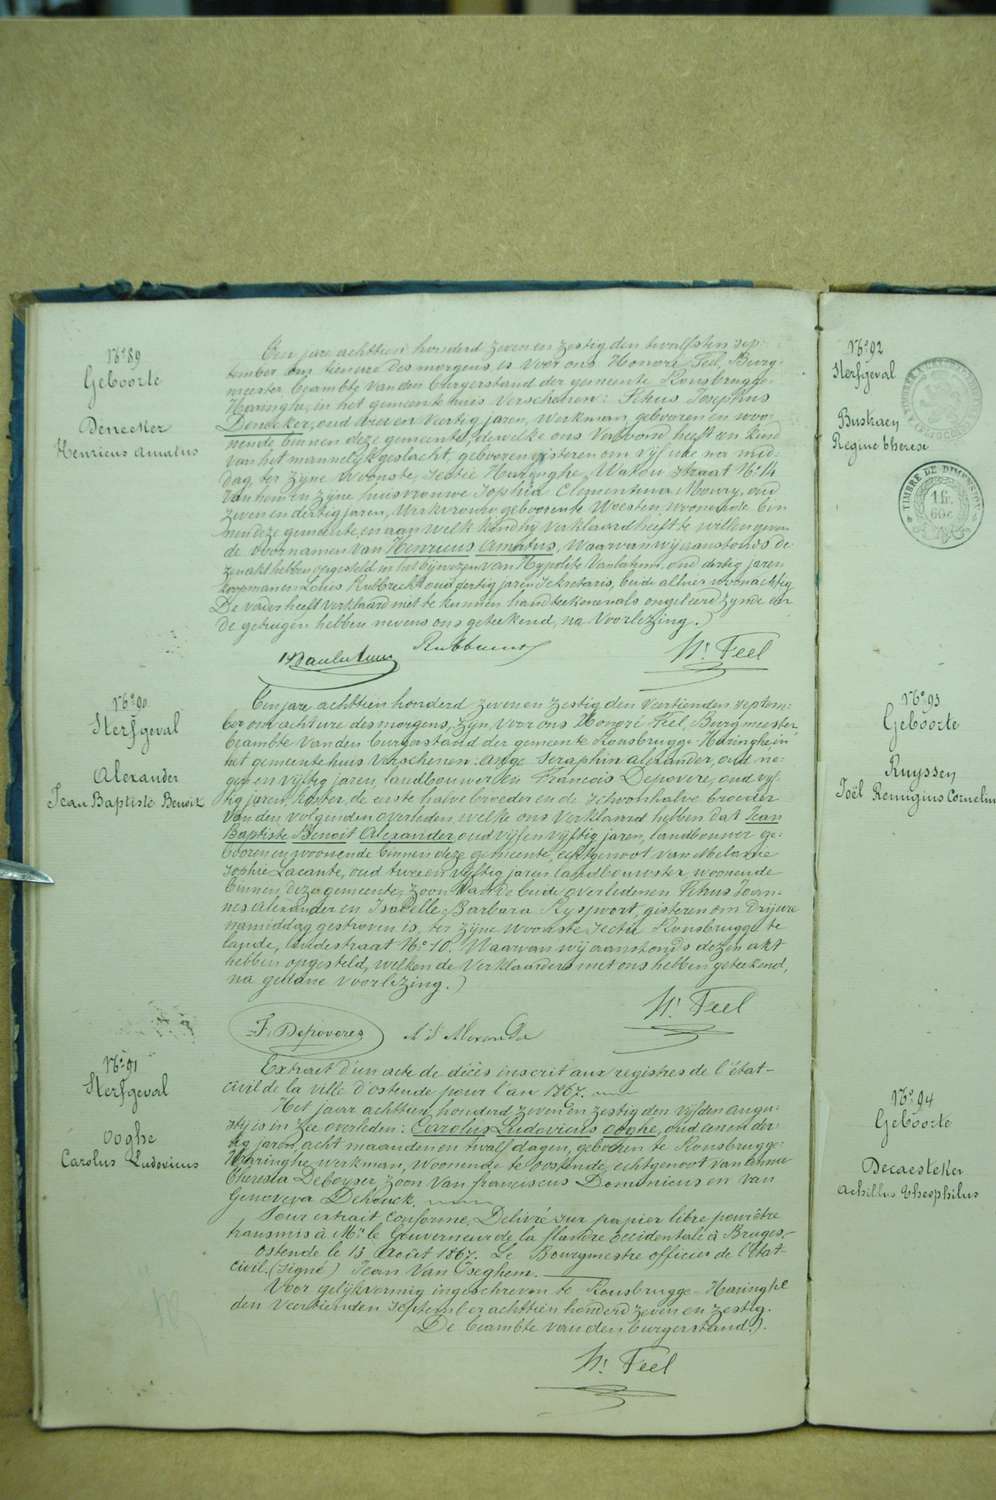 N° 89
Geboorte
Denecker
Henricus Amatus
Een jare achttien honderd zeven en zestig den twalfsten sep-
tember om tienure des morgens, is voor ons Honoré Feel, Burg-
meester beambte van den burgerstand der gemeente Rousbrugge-
Haringhe, in het gemeentehuis verschenen: Petrus Josephus
Denecker, oud drie en veertig jaren, werkman, geboren en woo-
nende binnen deze gemeente, dewelke ons vertoond heeft een kind
van het mannelijk geslacht, geboren gisteren om vijf ure na mid-
dag, ter zijne woonste, sectie Haringhe, Watou straat N° 14
van hem en zijne huisvrouwe Sophia Clementina Moury, oud
zeven en dertig jaren, werkvrouw, geboorente Woesten, woonende bin-
nen deze gemeente, en aan welk kind hy verklaard heeft te willen geven
de voornamen van Henricus Amatus, Waarvan wij aanstonds de-
zen akt hebben opgesteld in het bijwezen van Hypolite Vanlatum, oud dertig jaren
koopman en Louis Rubbrecht oud dertig jaren Sekretaris, beide alhier woonachtig
De vader heeft verklaard niet te kunnen handteekenen als ongeleerd zynde en
de getuigen hebben nevens ons geteekend, na voorlezing.)
H. Feel
N° 90
Sterfgeval
Alexander
Jean Baptiste Benoit
Een jare achttien honderd zeven en zestig den veertienden septem-
ber om acht ure des morgens, zijn voor ons Honoré Feel, Burgmeester
beambte van den burgerstand der gemeente Rousbrugge-Haringhe in
het gemeentehuis verschenen: Ange Seraphin Alexander, oud ne-
gen en vijftig jaren, landbouwer en François Depovere, oud vijf-
tig jaren, koster, de eerste halve broeder en de schoonhalve broeder
van den volgenden overleden, welke ons verklaard hebben dat Jean
Baptiste Benoit Alexander, oud vijf en vijftig jaren, landbouwer ge-
boren en woonende binnen deze gemeente, echtgenoot van Melanie
Sophie Lacante, oud twee en vijftig jaren landbouwster, woonende
binnen deze gemeente, zoon van de beide overledenen Petrus Joan-
nes Alexander en Isabelle Barbara Ryspoort, gisteren om drij ure
namiddag gestorven is, ter zijne woonste sectie Rousbrugge te
lande, landestraat N° 10. Waarvan wij aanstonds dezen akt
hebben opgesteld, welken de verklaarders met ons hebben geteekend,
na gedane voorlezing.)
H. Feel
F. Depovere
A S Alexander
N° 91
Sterfgeval
Ooghe
Carolus Ludovicus
Extrait d'un acte de décès inscrit aux registres de l'état-
civil de la ville d'ostende pour l'an 1867.
Het jaar achttien honderd zeven en zestig den vijfden augu-
stij is in zee overleden: Carolus Ludovicus Ooghe, oud een en der-
tig jaren, acht maanden en twalf dagen, geboren te Rousbrugge-
Haringhe, werkman, woonende te Oostende, echtgenoot van Anna
Theresia Deboyser, zoon van Franciscus Dominicus en van
Genoveva Dehouck.
Pour extrait conforme, Délivré sur papier libre pour être
transmis à Mr le Gouverneur de la flandre Occidentale à Bruges,
Ostende le 13 Août 1867. Le Bourgmestre officier de l'état-
civil. (Signé) Jean Van Iseghem.
Voor gelijkvormig ingeschreven te Rousbrugge-Haringhe
den veertienden September achttien honderd zeven en zestig.
De beambte van den burgerstand.).
H. Feel
N° 92
Sterfgeval
Bustraen
Regine Therese
TIMBRE DE DIMENSION
N° 93
Geboorte
Ruyssen
Joël Remigius Cornelius
N° 94
Geboorte
Decaesteker
Achillus Theophilus